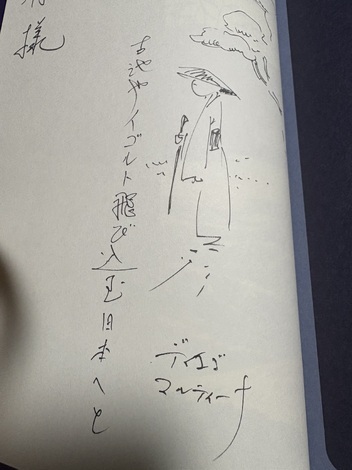 様
古池やイゴルト飛び込む日本へと
ディエゴ
マルティーナ